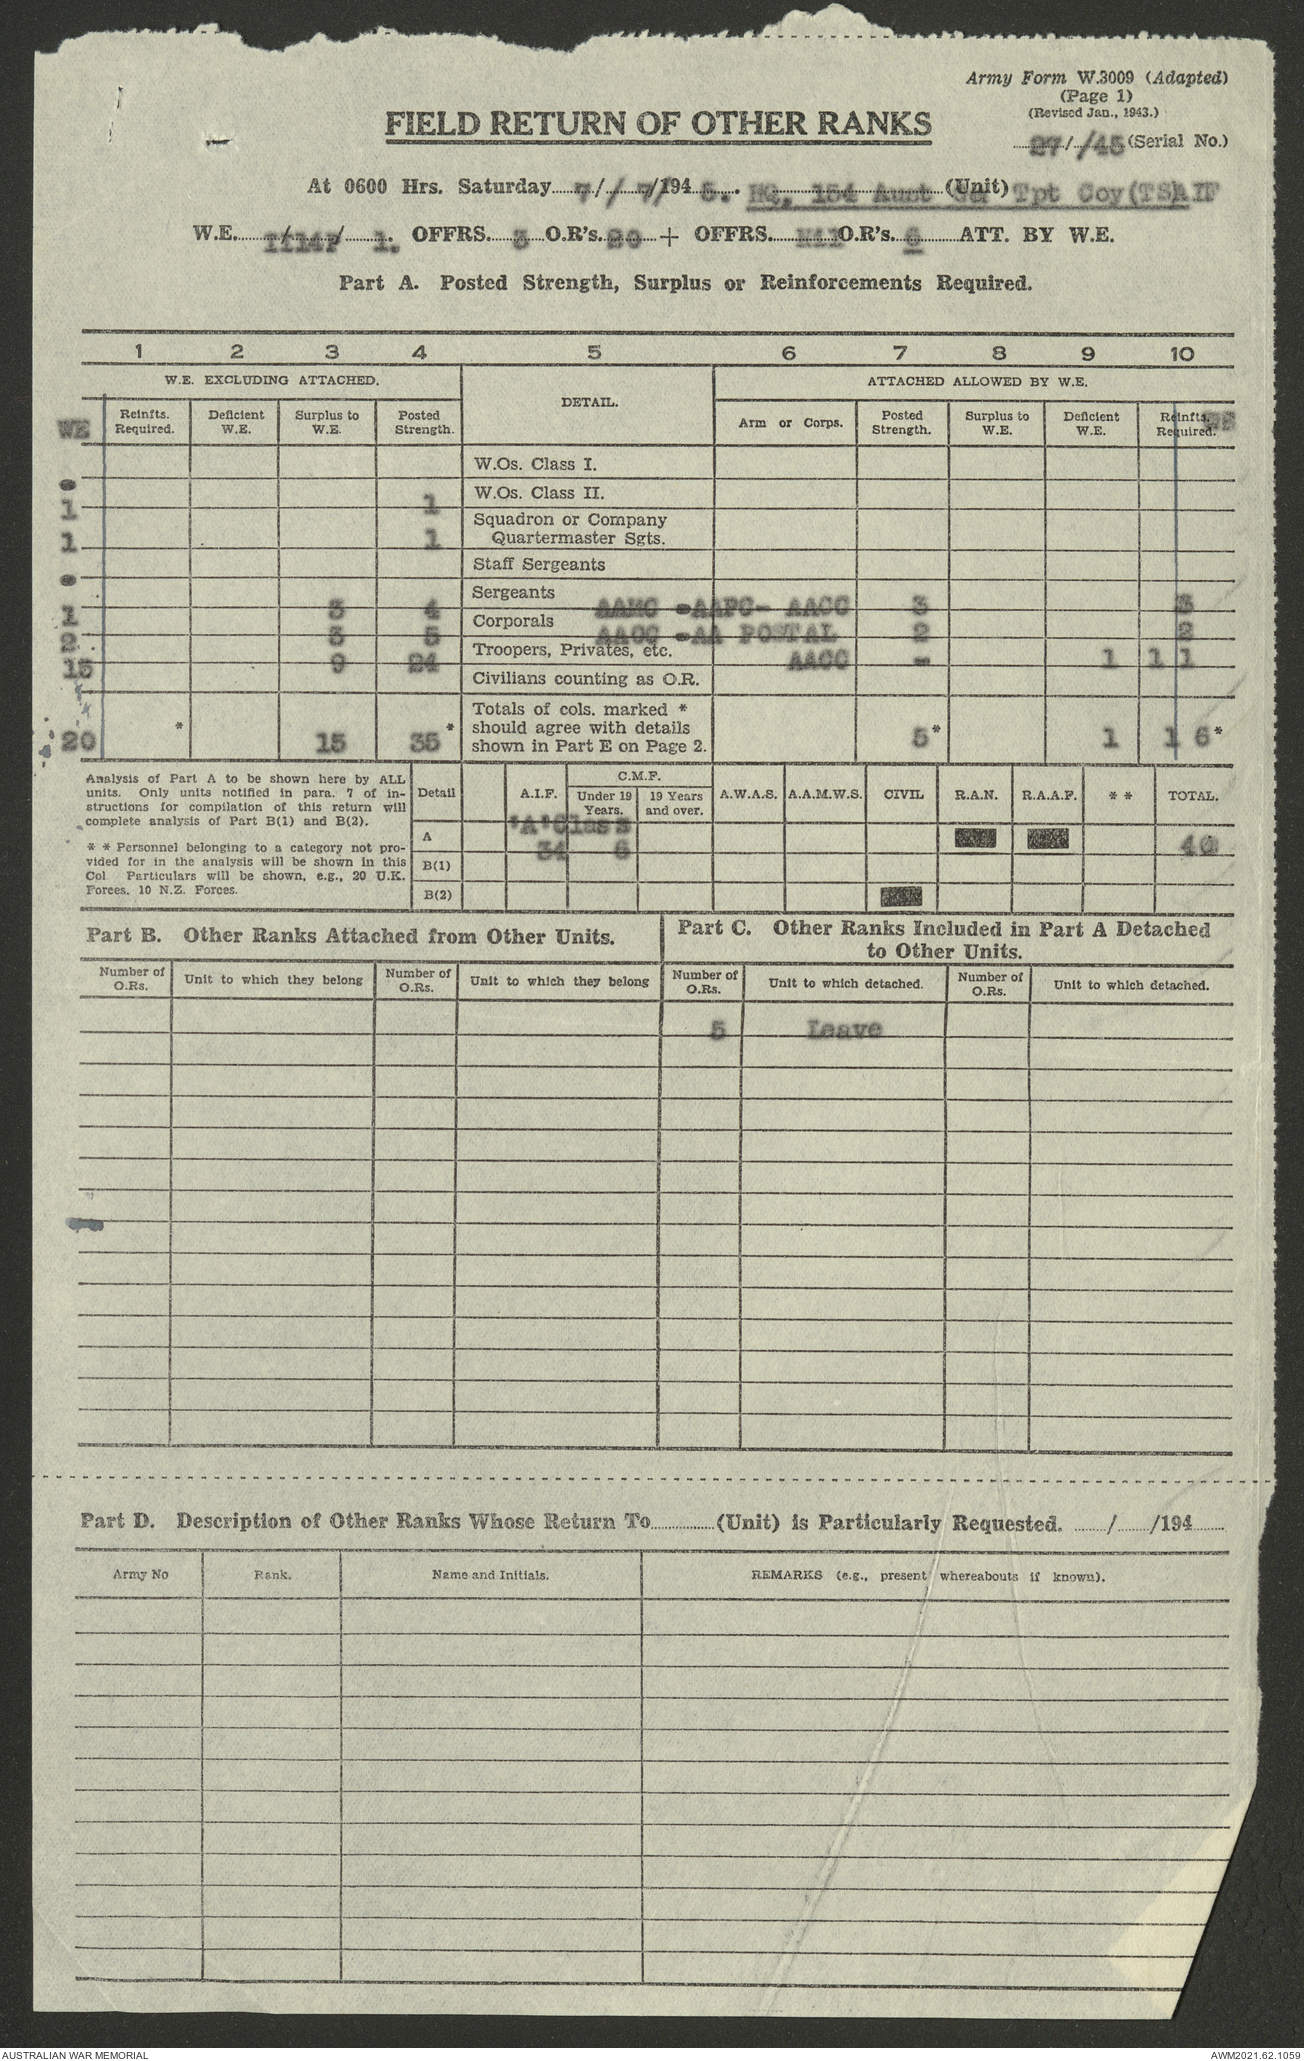 Army Form W.3009 (Adapted)
(Page 1)
(Revised Jan., 1943.)
FIELD RETURN OF OTHER RANKS
27/ /45 (Serial No.)
At 0600 Hrs. Saturday 7/ 7/ 1945. HQ, 154 Aust Tpt Coy(TS)AIF (Unit)
W.E. / / 1. OFFRS. 3 O.R's. 20 + OFFRS. Nil O.R's. 6 ATT. BY W.E.
Part A. Posted Strength, Surplus or Reinforcements Required.
1 2 3 4 5 6 7 8 9 10
W.E. EXCLUDING ATTACHED. DETAIL. ATTACHED ALLOWED BY W.E.
WE Reinfts. Required. Deficient W.E. Surplus to W.E. Posted Strength. Arm or Corps. Posted Strength. Surplus to W.E. Deficient W.E. Reinfts. Required. WE
W.Os. Class I.
-
W.Os. Class II.
1 1
Squadron or Company
Quartermaster Sgts.
1 1
Staff Sergeants
-
Sergeants
1 3 4 AAMC -AAPC- AACC 3 3
Corporals
2 3 5 AACC -AA POSTAL 2 2
Troopers, Privates, etc.
15 9 24 AACC - 1 1 1
Civilians counting as O.R.
Totals of cols. marked *
should agree with details
shown in Part E on Page 2.
20 * 15 35* 5* 1 1 6*
Analysis of Part A to be shown here by ALL
units. Only units notified in para. 7 of in-
structions for compilation of this return will
complete analysis of Part B(1) and B(2).
* * Personnel belonging to a category not pro-
vided for in the analysis will be shown in this
Col. Particulars will be shown, e.g., 20 U.K.
Forces, 10 N.Z. Forces.
Detail A.I.F. C.M.F. Under 19 Years. 19 Years and over. A.W.A.S. A.A.M.W.S. CIVIL R.A.N. R.A.A.F. * * TOTAL.
'A'Class
A 34 6 40
B(1)
B(2)
Part B. Other Ranks Attached from Other Units.
Part C. Other Ranks Included in Part A Detached
to Other Units.
Number of O.Rs. Unit to which they belong Number of O.Rs. Unit to which they belong Number of O.Rs. Unit to which detached. Number of O.Rs. Unit to which detached.
5 Leave
Part D. Description of Other Ranks Whose Return To (Unit) is Particularly Requested. / /194
Army No Rank. Name and Initials. REMARKS (e.g., present whereabouts if known).
AUSTRALIAN WAR MEMORIAL
AWM2021.62.1059